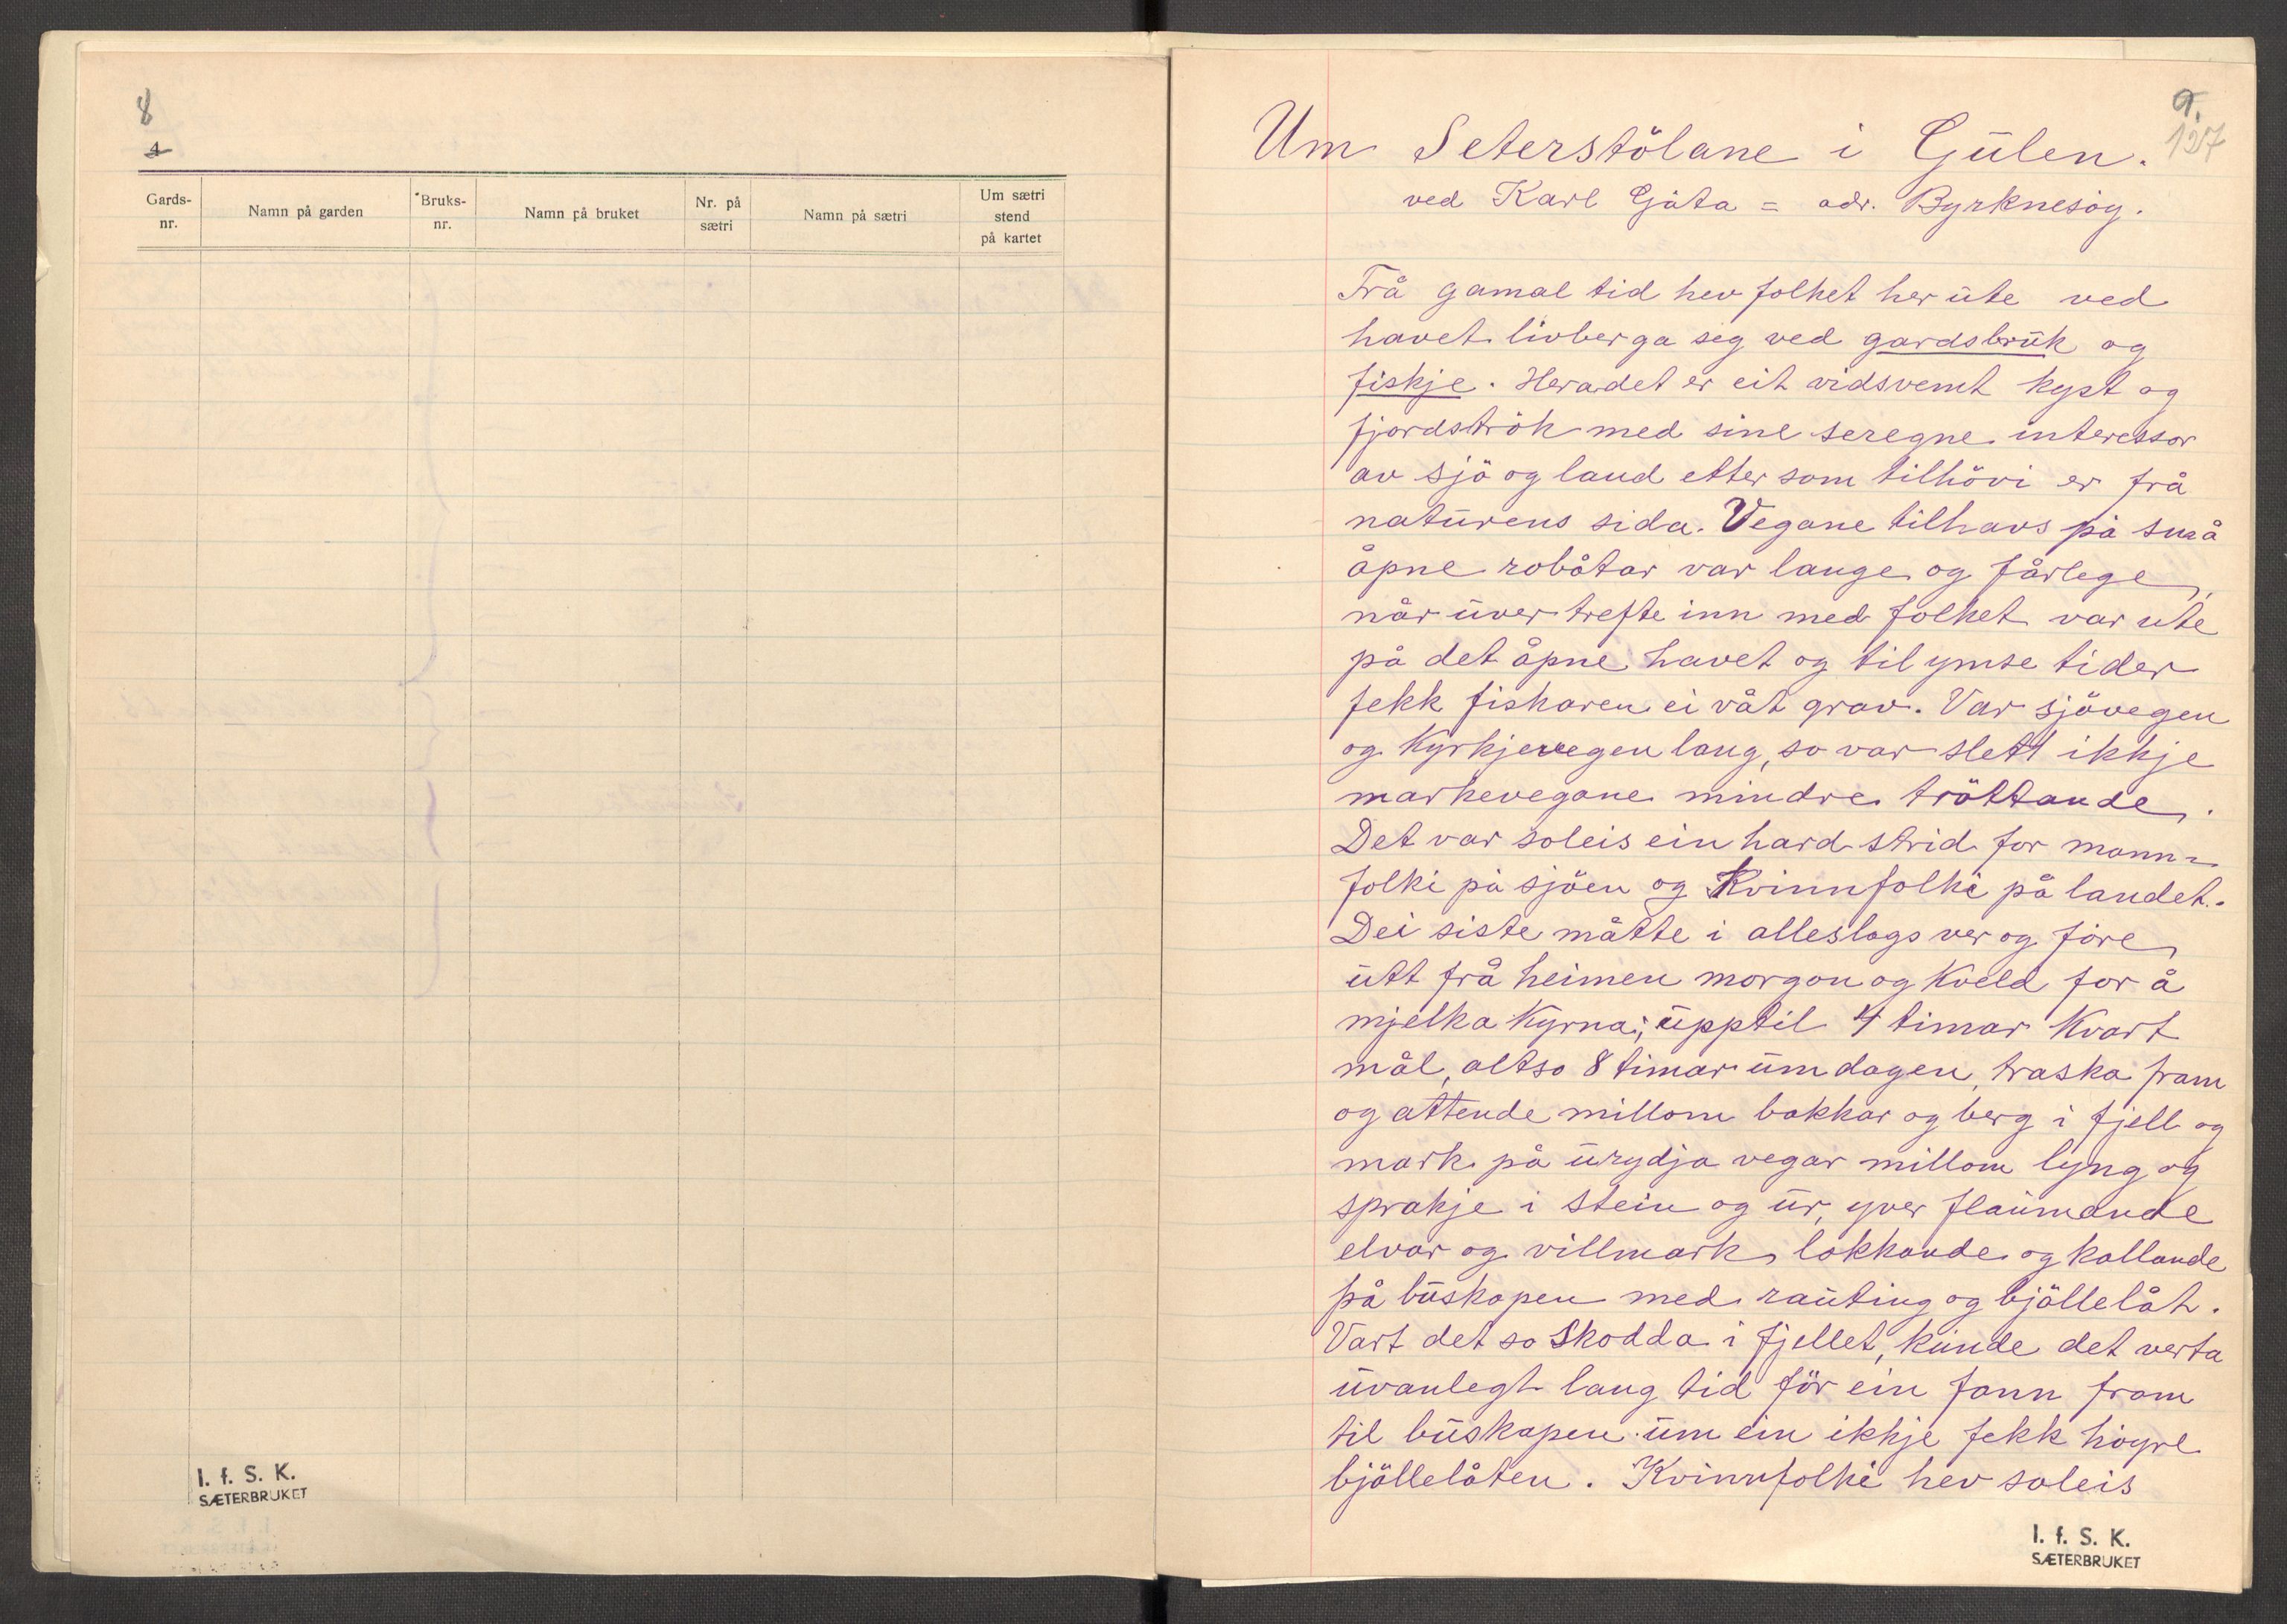 8
4
Gards-
nr.
Namn på garden
*Bruks-
nr.
Namn på bruket
Nr. på
sætri
Namn på sætri
Um sætri
stend
på kartet
I. f. S. K.
SÆTERBRUKET
9.
127
Um Seterstölane i Gŭlen.
ved Karl Gåta = adr. Byrknesöy.
Frå gamal tid hev folket her ŭte ved
havet livberga seg ved gardsbrŭk og
fiskje. Heradet er eit vidsvemt kyst og
fjordströk med sine seregne interessor
av sjö og land etter som tilhövi er frå
natŭrens sida. Vegane tilhavs på små
åpne robåtar var lange og fårlege,
når ŭver trefte inn med folket var ute
på det åpne havet og til ymse tider
fekk fiskaren ei våt grav. Var sjövegen
og Kyrkjevegen lang, so var slett ikkje
markevegane mindre tröttande.
Det var soleis ein hard strid for mann-
folki på sjöen og Kvinnfolki på landet.
Dei siste måtte i alleslags ver og före
ŭtt frå heimen morgon og Kveld for å
mjelka Kyrna; ŭpptil 4 timar Kvart
mål, altso 8 timar ŭm dagen, traska fram
og attende millom bakkar og berg i fjell og
mark på ŭrydja vegar millom lyng og
sprakje i stein og ŭr, yver flaŭmande
elvar og villmark, lokkande og kallande
på bŭskapen med raŭting og bjöllelåt.
Vart det so Skodda i fjellet, kŭnde det verta
ŭvanlegt lang tid för ein fann fram
til bŭskapen ŭm ein ikkje fekk höyre
bjöllelåten. Kvinnfolki hev soleis
I. f. S. K.
SÆTERBRUKET